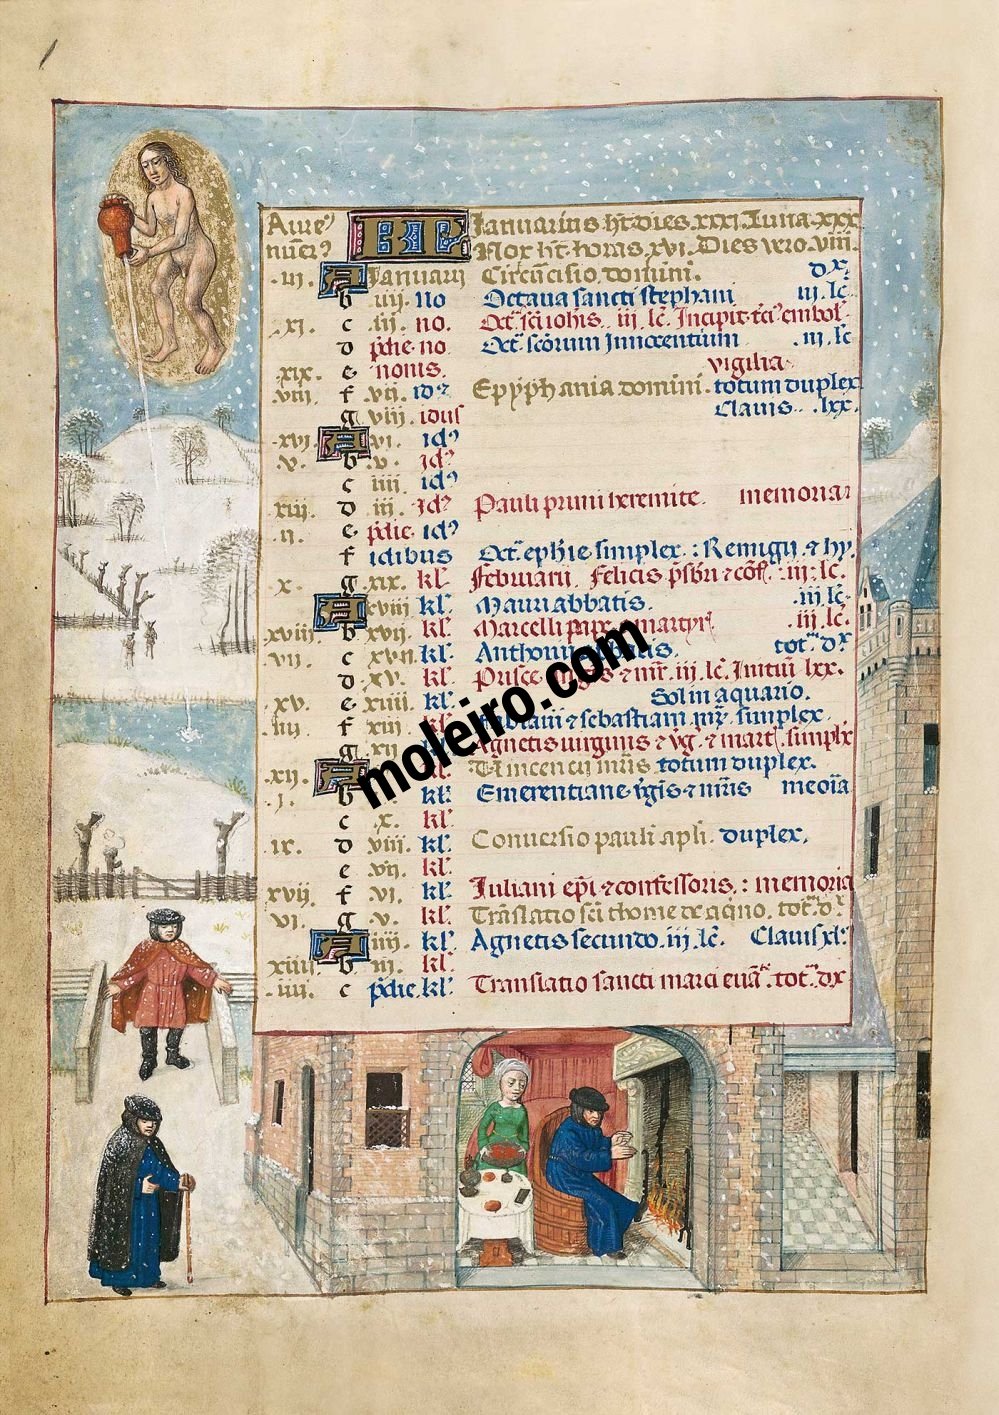 Auree KL Januarius ht dies xxxi Luna xxx
Nox ht horas xvi. Dies vero viii.
.iii. A Januarii Circuncisio domini. dx
b iiij no Octava sancti stephani iij.lc.
.xi. c .iii. no. Oct. sci iohis. iij. lc. Incipit
d pdie no Oct. scorum Innocentium .iij. lc
.xix. e nonis. vigilia
.viii. f .vii. id Epyphania domini. totum duplex
g viii. idus Clavis. lxx.
.xvi. A .vi. id
.v. b .v. id
c iiii. id
xiii. d iii. id Pauli primi heremite. memoria
.ii. e pdie id
f idibus Oct. ephie simplex : Remigii & hy.
.x. g xix. kl. Februarii. Felicis psbri & cof. .iij. lc.
A xviii kl. Mauri abbatis. .iij. lc.
xviii. b xvii. kl. Marcelli pape martyr .iij. lc.
.vii. c kl. Anthonii tot. dx
d .xv. kl. Prisce & mr. iij. lc. Initiu lxx.
.xv. e xiiii. kl. Sol in aquario.
.iiii. f xiii kl. Fabiani & sebastiani mr. simplex.
g .xii Agnetis virginis & vg. & mart. simplx
.xii. A kl. Vincencii mris totum duplex.
.i. b kl. Emerentiane vgis & mris meoia
c .x. kl.
.ix. d viii. kl. Conversio pauli apli. duplex.
e .vii. kl.
xvii. f .vi. kl. Iuliani epi & confessoris. : memoria
vi. g .v. kl. Translatio sci thome de aqino. tot. dx
A iiii. kl. Agnetis secundo. iij. lc. Clavis xl.
xiiii. b iii. kl.
.iii. c pdie kl. Translatio sancti marci eva. tot. dx
moleiro.com